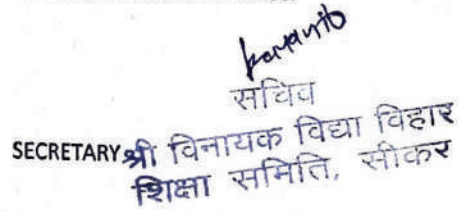 सचिव
SECRETARY श्री विनायक विद्या विहार
शिक्षा समिति, सीकर